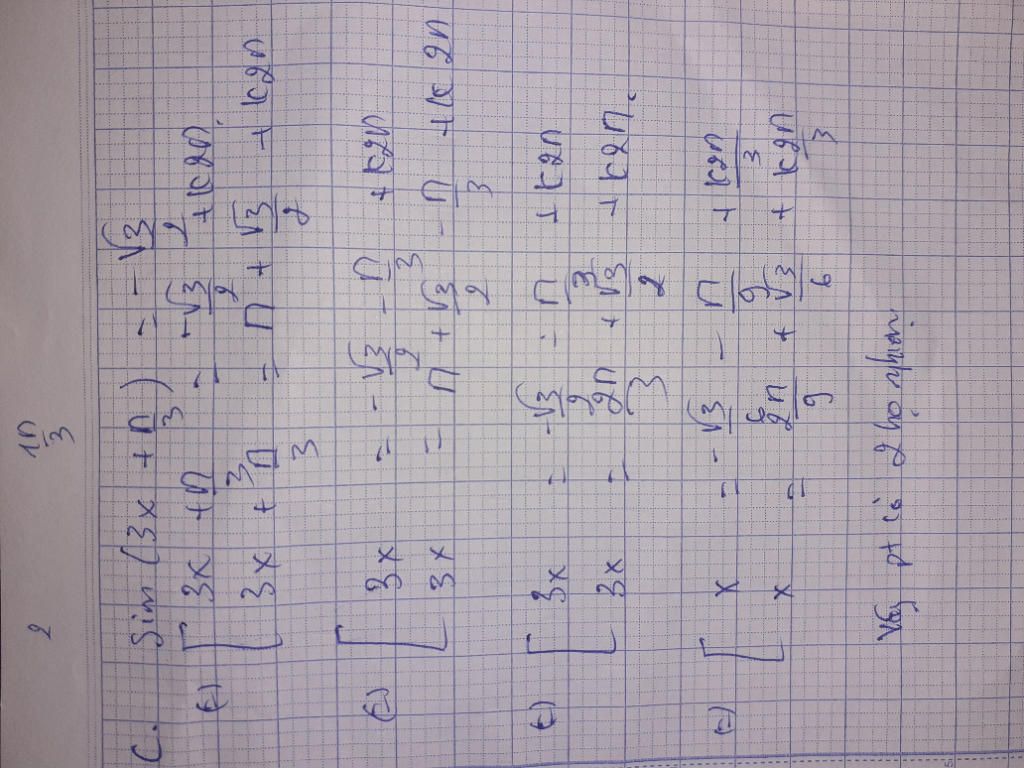 2 1π/3
C. Sin (3x + π/3) = -√3/2
(=) [ 3x + π/3 = -√3/2 + k2π
3x + π/3 = π + √3/2 + k2π
(=) [ 3x = -√3/2 - π/3 + k2π
3x = π + √3/2 - π/3 + k2π
(=) [ 3x = -√3/2 - π/3 + k2π
3x = 2π/3 + √3/2 + k2π.
(=) [ x = -√3/6 - π/9 + k2π/3
x = 2π/9 + √3/6 + k2π/3
Vậy pt có 2 họ nghiệm.